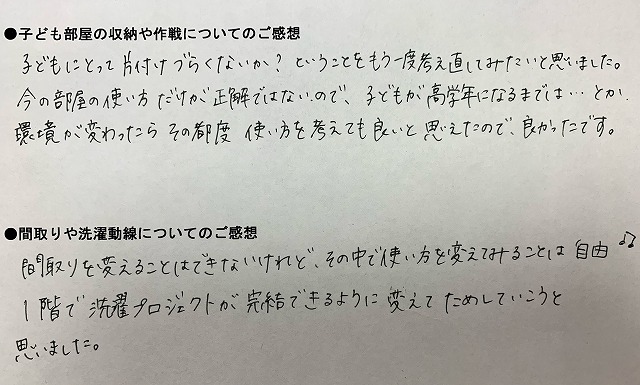 ●子ども部屋の収納や作戦についてのご感想
子どもにとって片付けづらくないか？ということをもう一度考え直してみたいと思いました。
今の部屋の使い方だけが正解ではないので、子どもが高学年になるまでは…とか、
環境が変わったらその都度使い方を考えても良いと思えたので、良かったです。
●間取りや洗濯動線についてのご感想
間取りを変えることはできないけれど、その中で使い方を変えてみることは自由♫
1階で洗濯プロジェクトが完結できるように変えてためしていこうと
思いました。